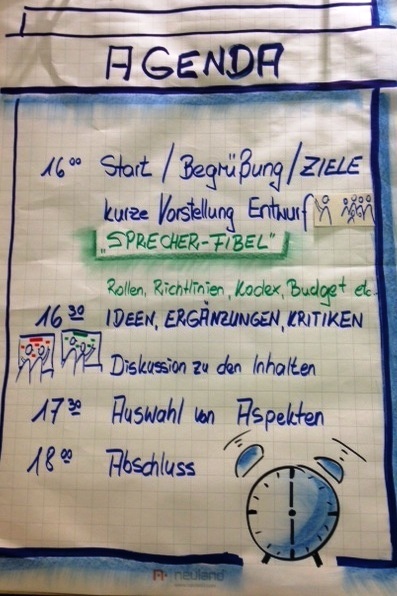 AGENDA
16⁰⁰ Start / Begrüßung / ZIELE
kurze Vorstellung Entwurf
„SPRECHER-FIBEL"
Rollen, Richtlinien, Kodex, Budget etc.
16³⁰ IDEEN, ERGÄNZUNGEN, KRITIKEN
Diskussion zu den Inhalten
17³⁰ Auswahl von Aspekten
18⁰⁰ Abschluss
neuland